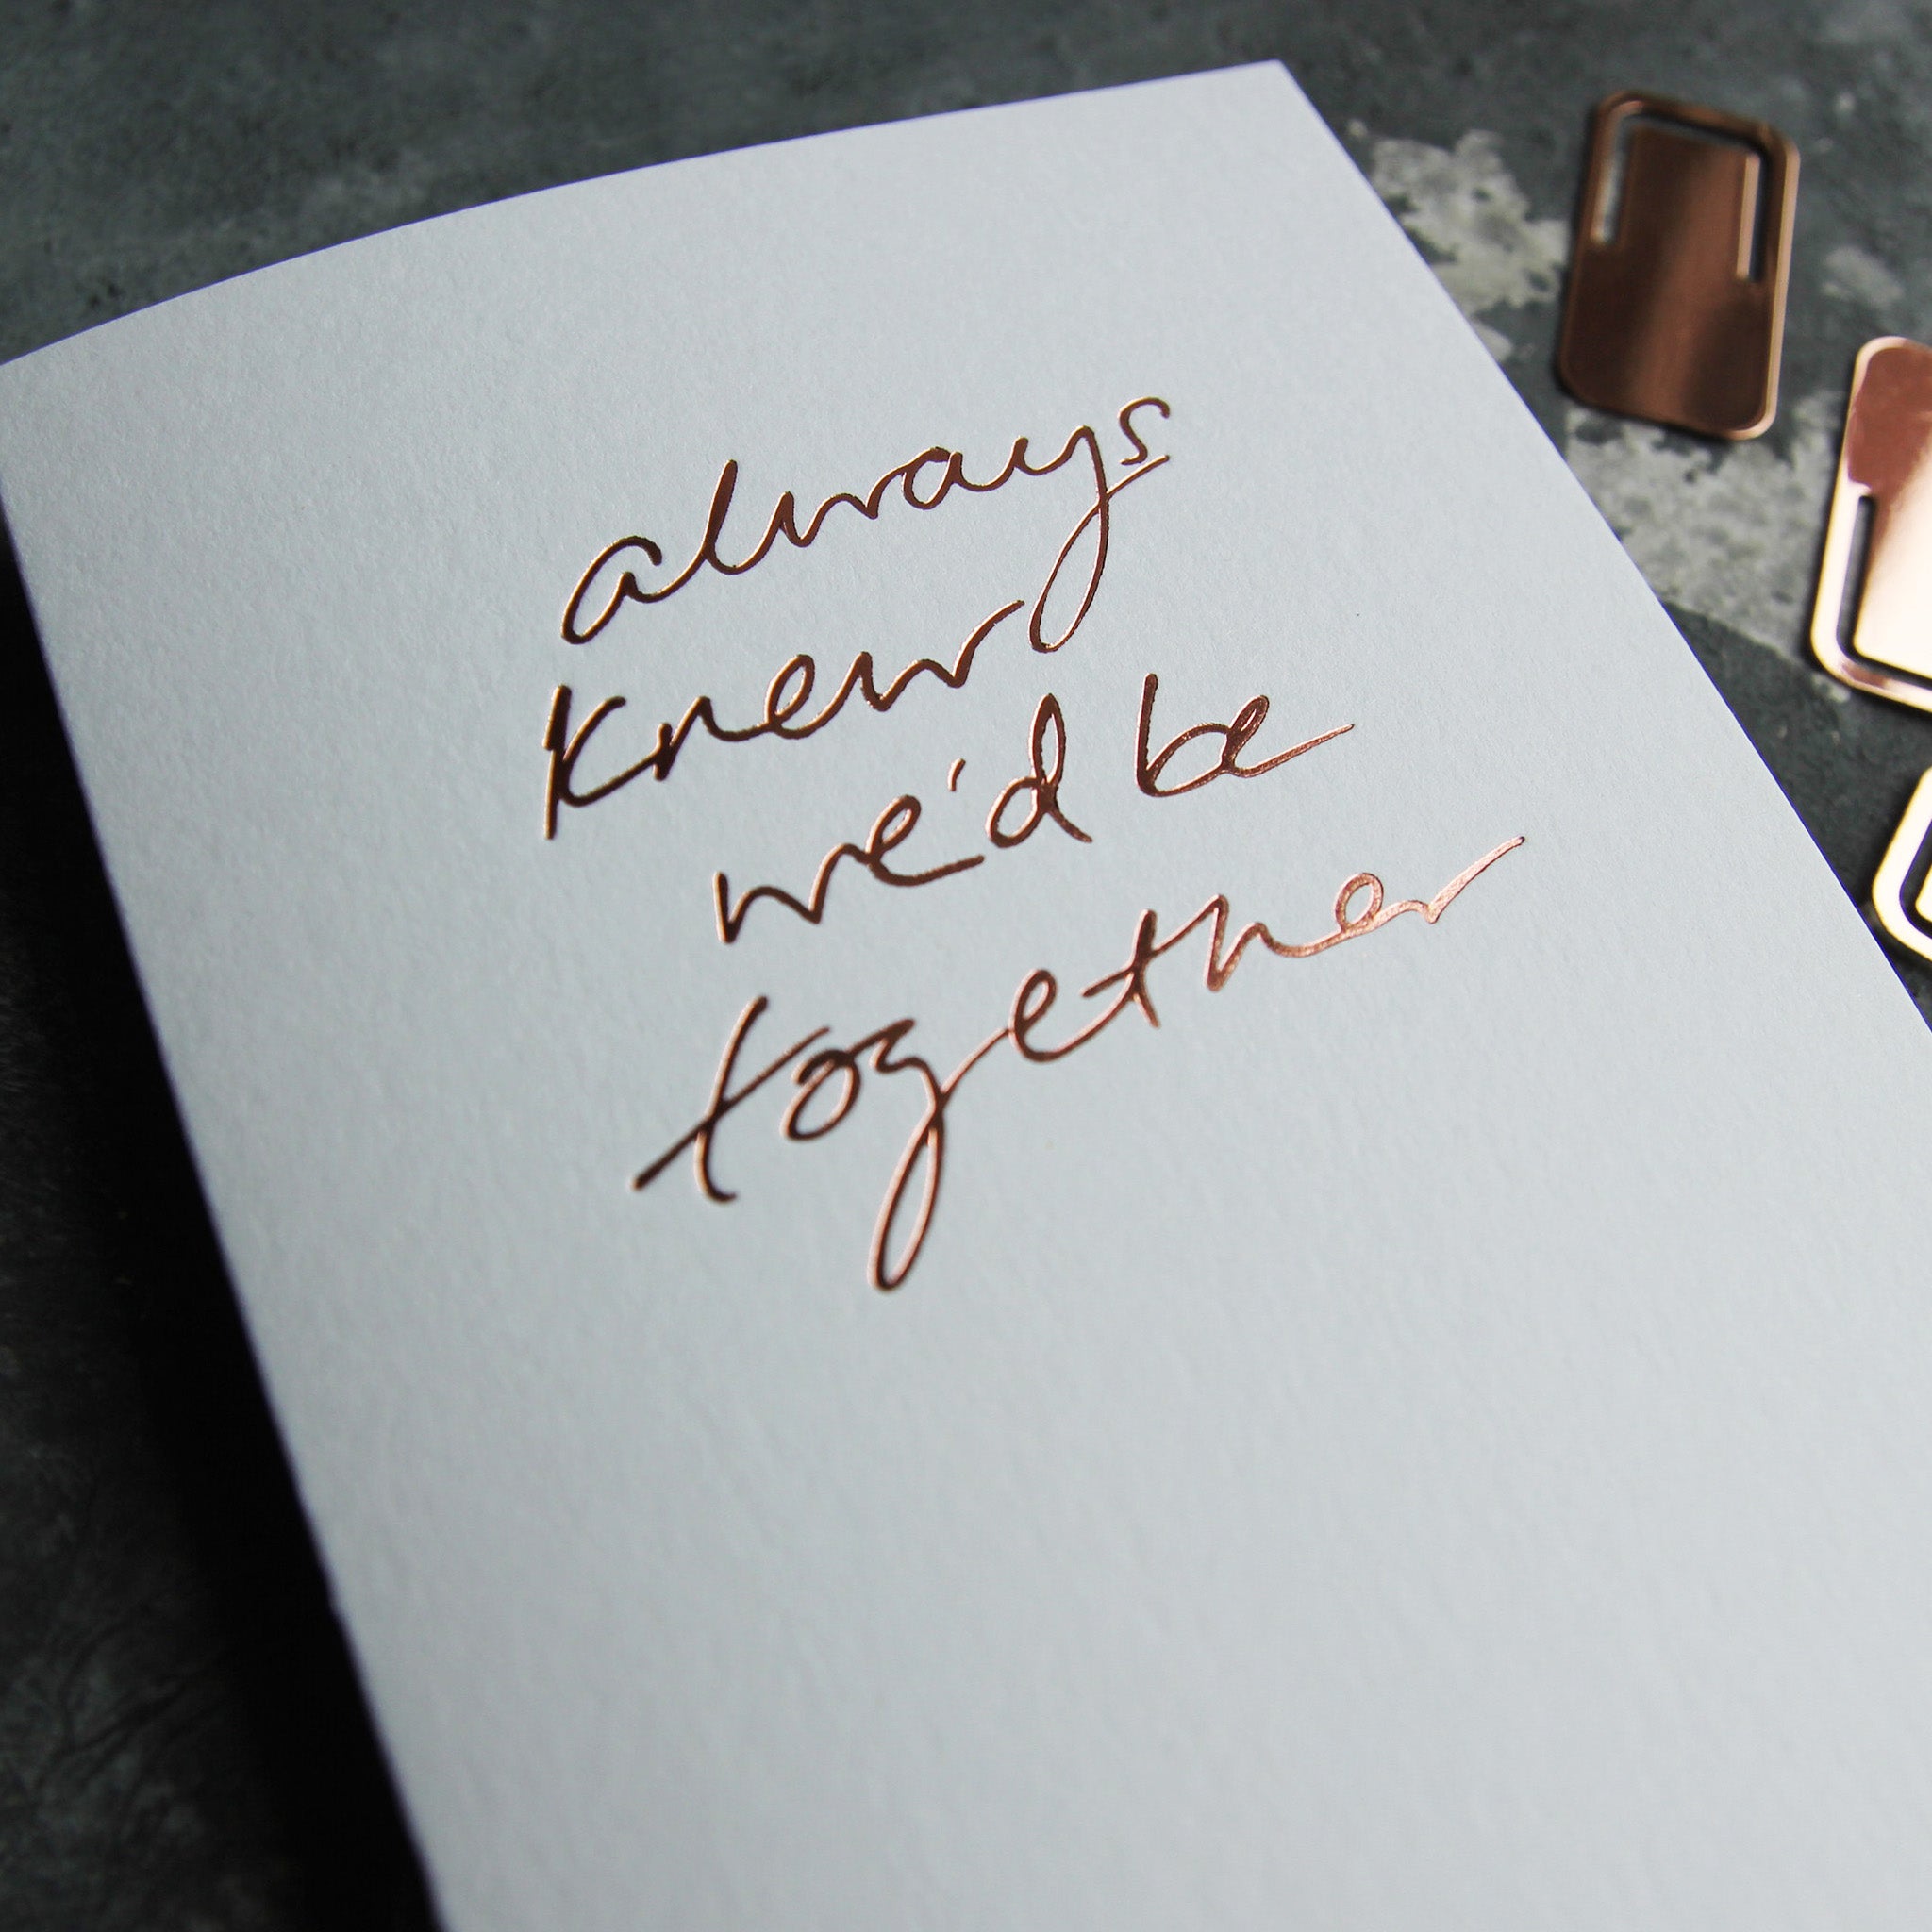 always
knew
we'd be
together